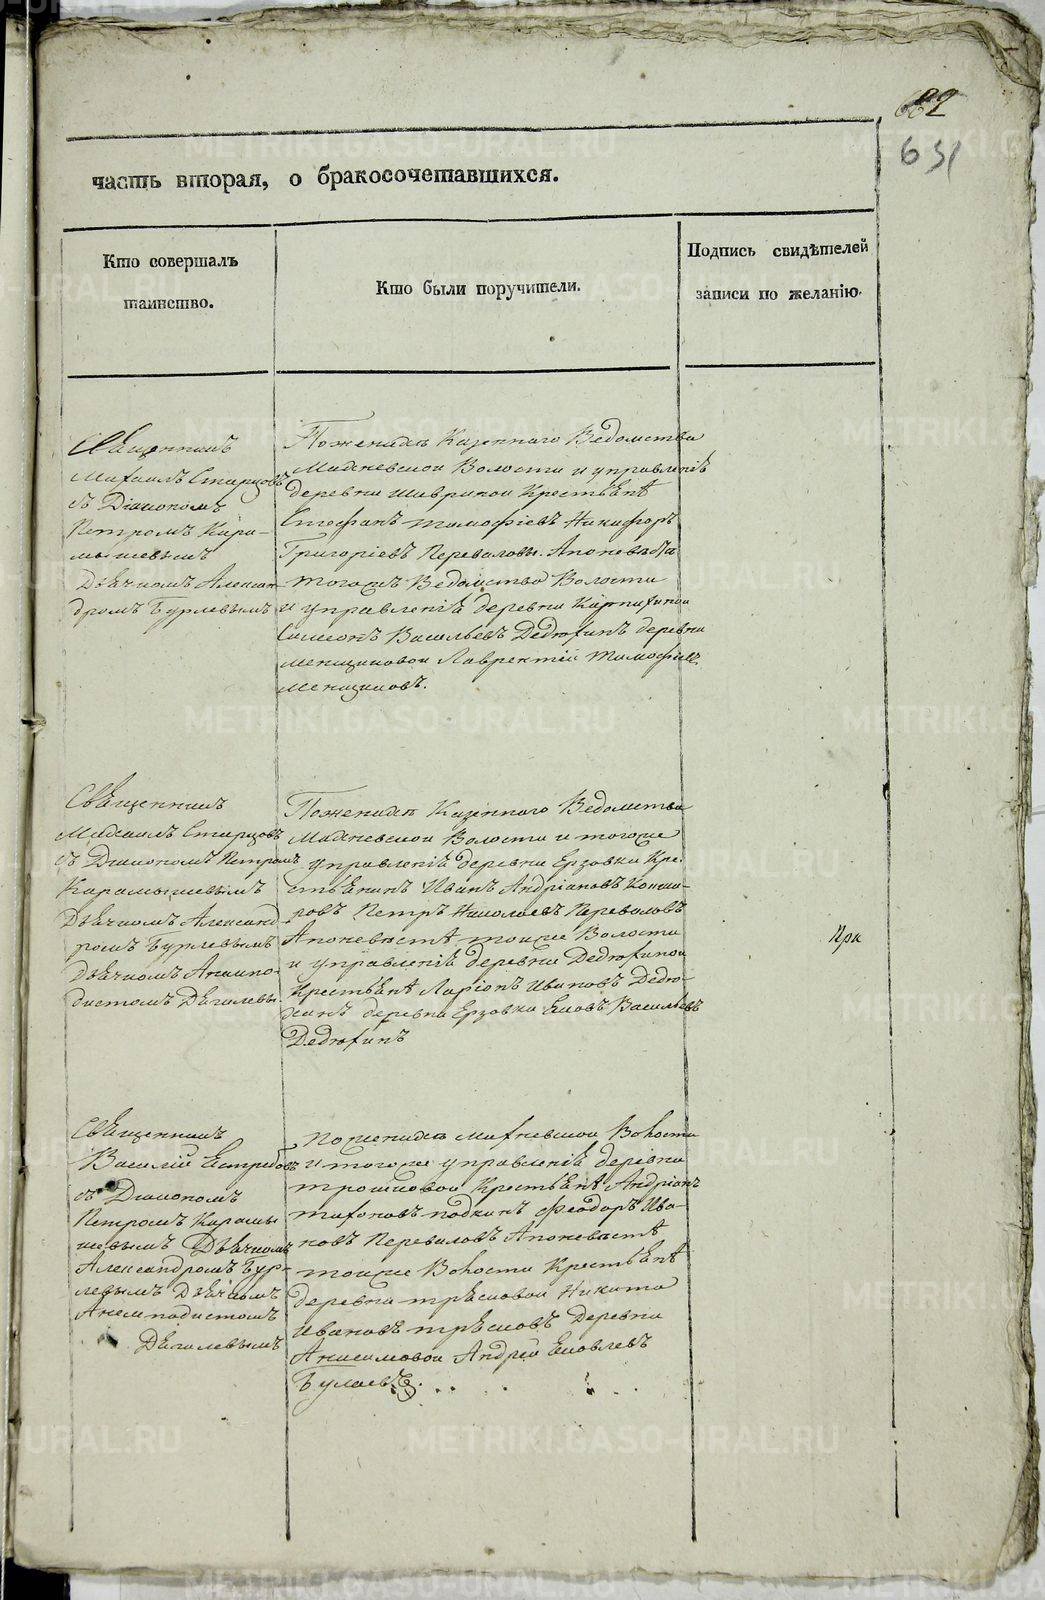 682
631
часть вторая, о бракосочетавшихся.
Кто совершалъ
таинство.
Кто были поручители.
Подпись свидѣтелей
записи по желанію.
Священникъ
Михаилъ Старцовъ
съ Діакономъ
Петромъ Кара-
мышевымъ
Дьячкомъ Алексан
дромъ Бурлевымъ
По женихѣ Казеннаго Ведомства
Махневской Волости и управленіѣ
деревни Шавриной Крестьѣне
Стефанъ Тимофіевъ Никифоръ
Григоріевъ Переваловы. А по невѣстѣ
тогожъ Ведомства Волости
и управленіѣ деревни Карпихиной
Симеонъ Васильевъ Дедюхинъ деревни
Менщиковой Лаврентій Тимофіевъ
Менщиковъ.
Священникъ
Михаилъ Старцовъ
съ Діакономъ Петромъ
Карамышевымъ
Дьячкомъ Александ
ромъ Бурлевымъ
дьячкомъ Анемпо-
дистомъ Дягилевы
По женихѣ Казеннаго Ведомства
Махневской Волости и тогоже
управленіѣ деревни Ерзовки Кре-
стьѣнинъ Иванъ Андріановъ
ровъ Петръ Николаевъ Переваловъ
А по невѣстѣ тойже Волости
и управленіѣ деревни Дедюхиной
Крестьѣне Ларіонъ Ивановъ Дедю-
хинъ деревни Ерзовки Ековъ Васильевъ
Дедюхинъ
При
Священникъ
Василій Естребовъ
съ Діакономъ
Петромъ Карамы
шевымъ Дьячкомъ
Александромъ Бур-
левымъ Дьячкомъ
Анемподистомъ
Дягилевымъ
По женихѣ Махневской Волости
и тогоже управленіѣ деревни
Трошковой Крестьѣне Андріанъ
Тихоновъ Подкинъ Феодоръ Ива-
новъ Переваловъ А по невѣстѣ
тойже Волости Крестьѣне
деревни Трѣсковой Никита
Ивановъ Трѣсковъ Деревни
Анисимовой Андрей Ековлевъ
Булаевъ.
METRIKI.GASO-URAL.RU